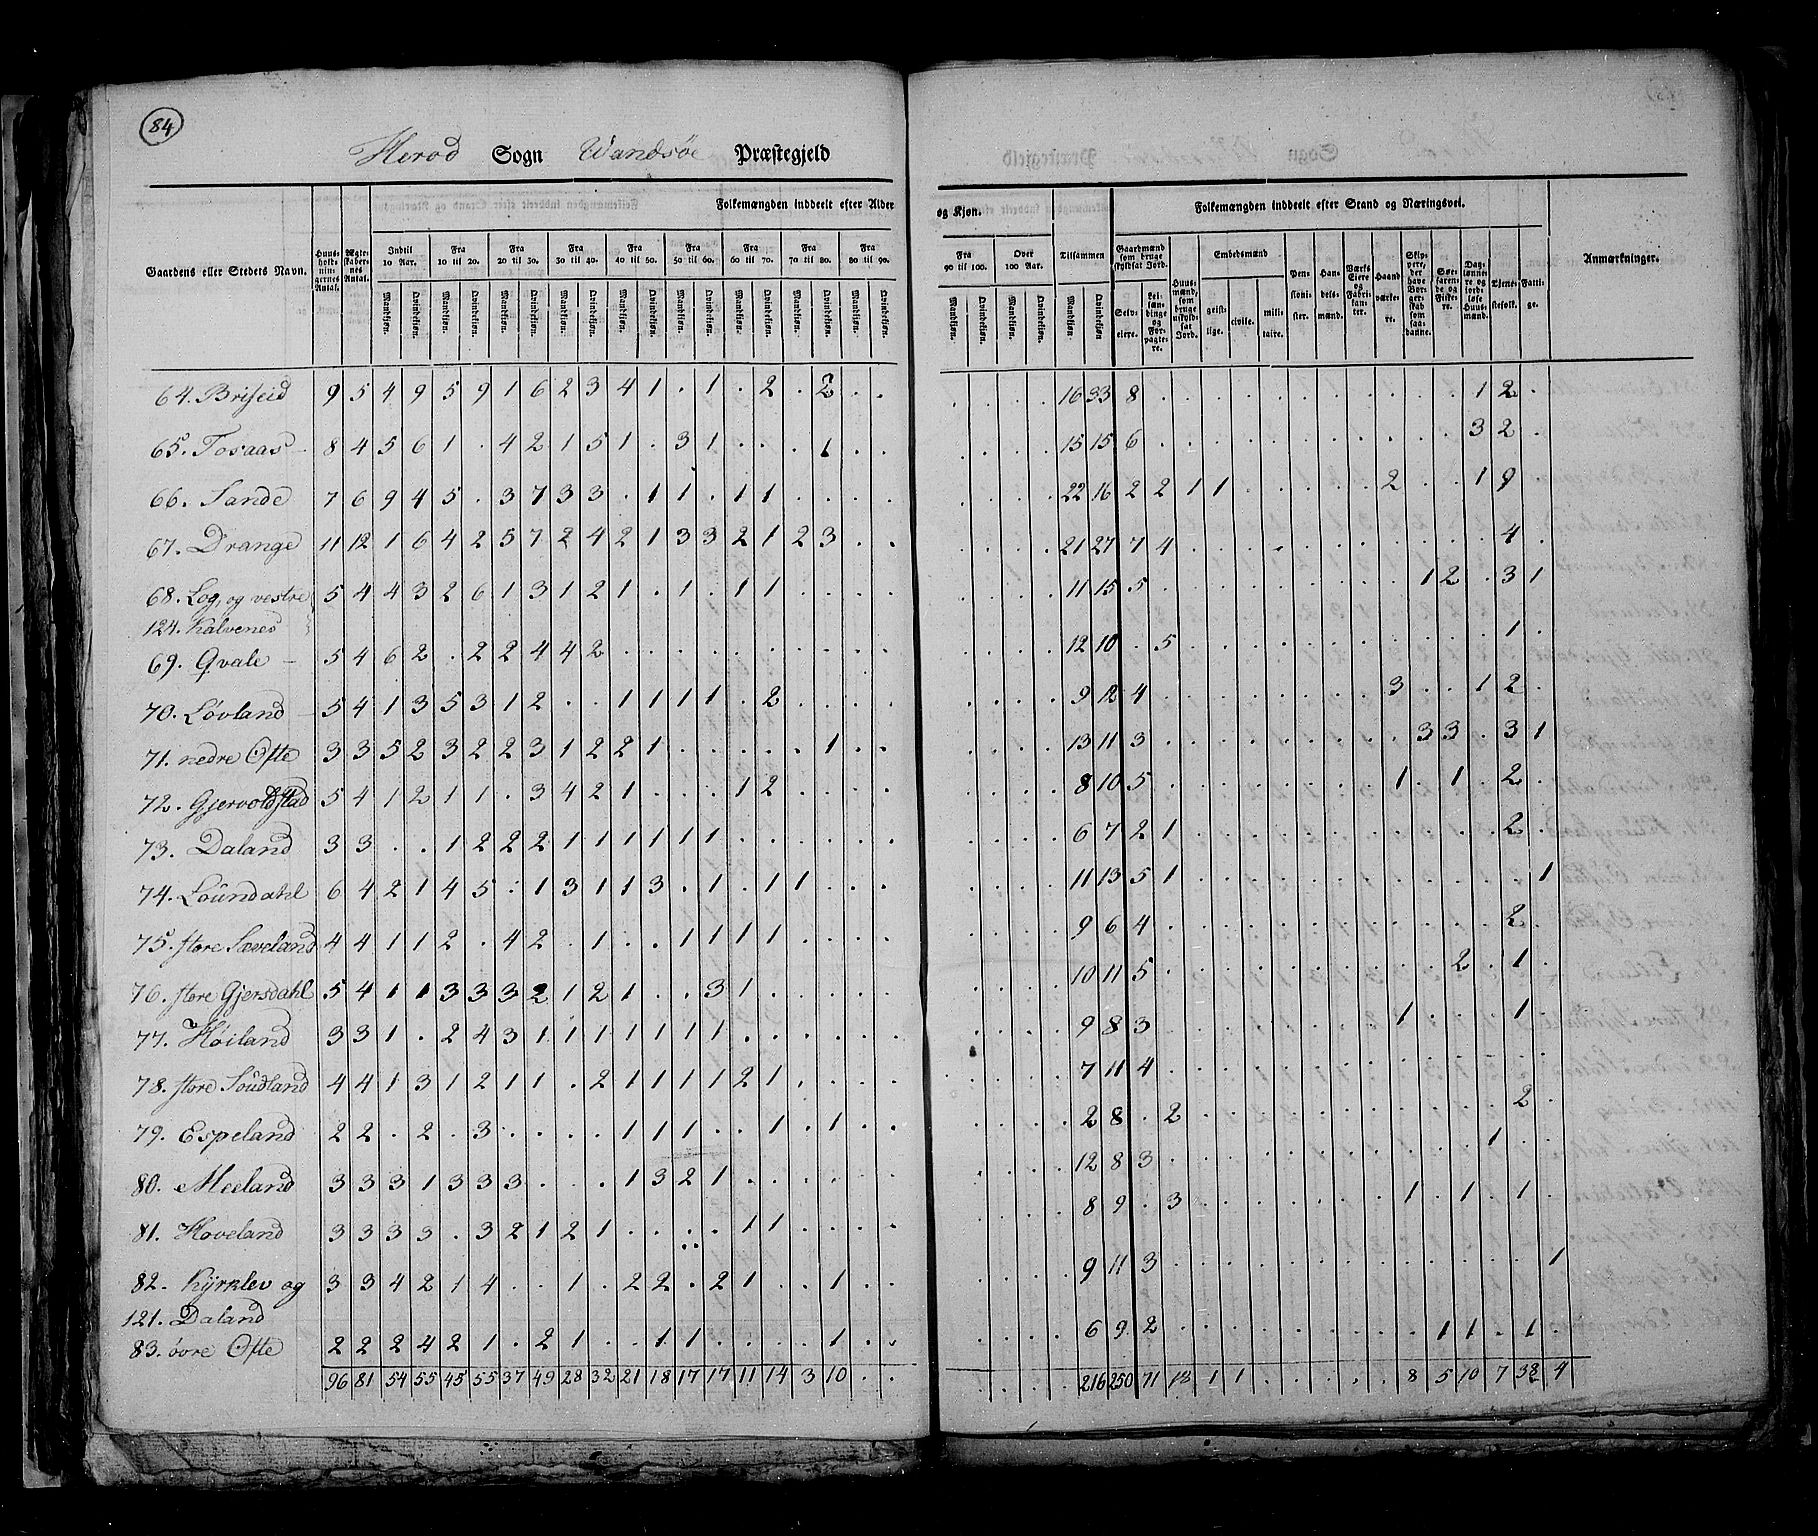 84
Herod Sogn Wandsøe Præstegjeld
Gaardens eller Stedets Navn.
Huusholdningernes Antal.
Ægteskabernes Antal.
Folkemængden inddeelt efter Alder og Kjøn.
Indtil 10 Aar. Fra 10 til 20. Fra 20 til 30. Fra 30 til 40. Fra 40 til 50. Fra 50 til 60. Fra 60 til 70. Fra 70 til 80. Fra 80 til 90. Fra 90 til 100. Over 100 Aar.
Tilsammen
Mandkjøn. Qvindekjøn.
Folkemængden inddeelt efter Stand og Næringsvei.
Gaardmænd som bruge skyldsat Jord.
Selveiere. Leilændinge og Forpagtere.
Huusmænd, som bruge uskyldsat Jord.
Embedsmænd
geistlige. civile. militaire.
Pensionister. Handelsmænd. Værks Eiere og Fabrikanter. Haandværkere. Skippere, der have Borgerskab som saadanne. Søefarende og Fiskere. Daglønnere og jordløse Huusmænd. Tjenestefolk. Fattige.
Anmærkninger.
64. Briseid 9 5 4 9 5 9 1 6 2 3 4 1 . 1 . 2 . 2 . . . . . . 16 33 8 . . . . . . . . . . . 1 2 .
65. Tosaas 8 4 5 6 1 . 4 2 1 5 1 . 3 1 . . . 1 . . . . . . 15 15 6 . . . . . . . . . . . 3 2 .
66. Sande 7 6 9 4 5 . 3 7 3 3 . 1 1 . 1 1 . . . . . . . . 22 16 2 2 1 1 . . . . . 2 . . 1 9 .
67. Drange 11 12 1 6 4 2 5 7 2 4 2 1 3 3 2 1 2 3 . . . . . . 21 27 7 4 . . . . . . . . . . . 4 .
68. Log, og vestre 5 4 4 3 2 6 1 3 1 2 1 . 1 . 1 1 . . . . . . . . 11 15 5 . . . . . . . . . 1 2 . 3 1
124. Kalvenes
69. Qvale 5 4 6 2 . 2 2 4 4 2 . . . . . . . . . . . . . . 12 10 . 5 . . . . . . . . . . . 1 .
70. Løvland 5 4 1 3 5 3 1 2 . . 1 1 1 1 . 2 . . . . . . . . 9 12 4 . . . . . . . . 3 . . 1 2 .
71. nedre Ofte 3 3 5 2 3 2 2 3 1 2 2 1 . . . . . 1 . . . . . . 13 11 3 . . . . . . . . . 3 3 . 3 1
72. Gjervoldstad 5 4 1 2 1 1 . 3 4 2 1 . . . 1 2 . . . . . . . . 8 10 5 . . . . . . . . 1 . 1 . 2 .
73. Daland 3 3 . . 1 2 2 2 1 1 1 1 1 1 . . . . . . . . . . 6 7 2 1 . . . . . . . . . . . 2 .
74. Loundahl 6 4 2 1 4 5 . 1 3 1 1 3 . 1 . 1 1 . . . . . . . 11 13 5 1 . . . . . . . . . . . . 1
75. store Sæveland 4 4 1 1 2 . 4 2 . 1 . . 1 1 1 1 . . . . . . . . 9 6 4 . . . . . . . . . . . . 2 .
76. store Gjersdahl 5 4 1 1 3 3 3 2 1 2 1 . . 3 1 . . . . . . . . . 10 11 5 . . . . . . . . . . 2 . 1 .
77. Høiland 3 3 1 . 2 4 3 1 1 1 1 1 1 1 . . . . . . . . . . 9 8 3 . . . . . . . . 1 . . . 1 .
78. store Soudland 4 4 1 3 1 2 1 1 . 2 1 1 1 1 2 1 . . . . . . . . 7 11 4 . . . . . . . . . . . . . .
79. Espeland 2 2 . 2 . 3 . . . . 1 1 1 . . 1 . 1 . . . . . . 2 8 . 2 . . . . . . . . . . . 2 .
80. Meeland 3 3 3 1 3 3 3 . . . 1 3 2 1 . . . . . . . . . . 12 8 3 . . . . . . . . . . . 1 . .
81. Hoveland 3 3 3 3 . 3 2 1 2 1 . . . . 1 1 . . . . . . . . 8 9 . 3 . . . . . . . 1 . 1 . 1 .
82. Kyrklev og 3 3 4 2 1 4 . . 1 . 2 2 . 2 1 . . 1 . . . . . . 9 11 3 . . . . . . . . . . . . . 1
121. Daland
83. övre Ofte 2 2 2 4 2 1 . 2 1 . . 1 1 . . . . 1 . . . . . . 6 9 2 . . . . . . . . . 1 1 . 1 .
96 81 54 55 45 55 37 49 28 32 21 18 17 17 11 14 3 10 . . . . . . 216 250 71 18 1 1 . . . . . 8 5 10 7 38 4